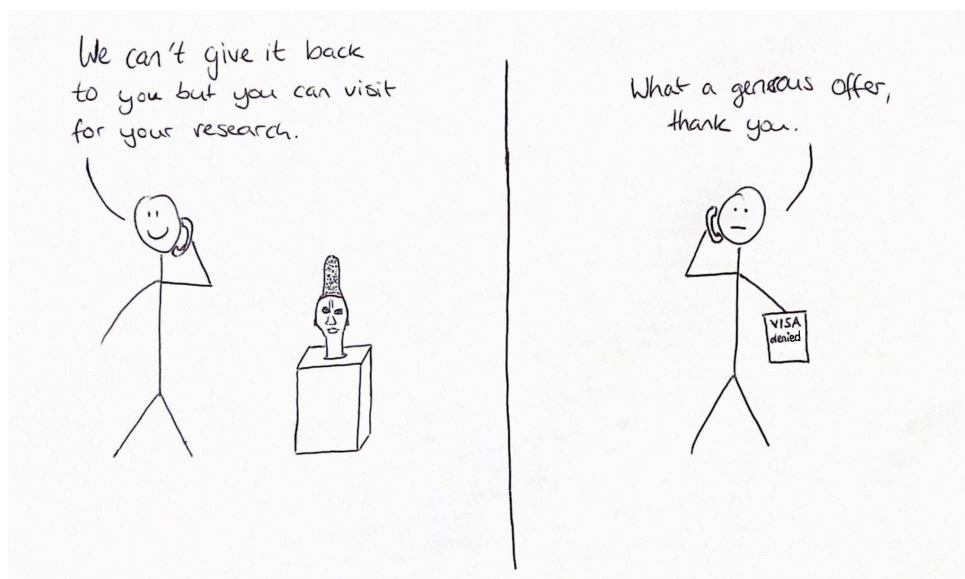 We can't give it back
to you but you can visit
for your research.
What a generous offer,
thank you.
VISA
denied